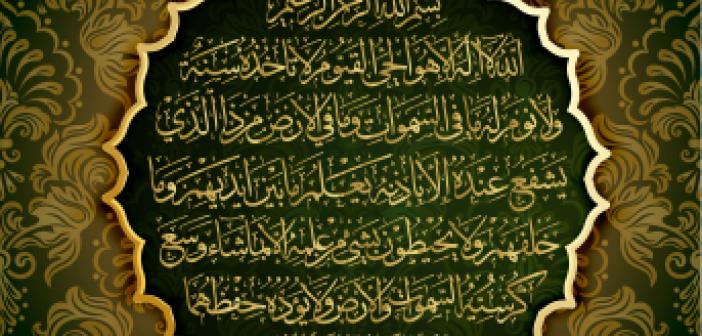 بسم الله الرحمن الرحيم
الله لا إله إلا هو الحي القيوم لا تأخذه سنة
ولا نوم له ما في السموات وما في الأرض من ذا الذي
يشفع عنده إلا بإذنه يعلم ما بين أيديهم وما
خلفهم ولا يحيطون بشيء من علمه إلا بما شاء وسع
كرسيه السموات والأرض ولا يؤده حفظهما